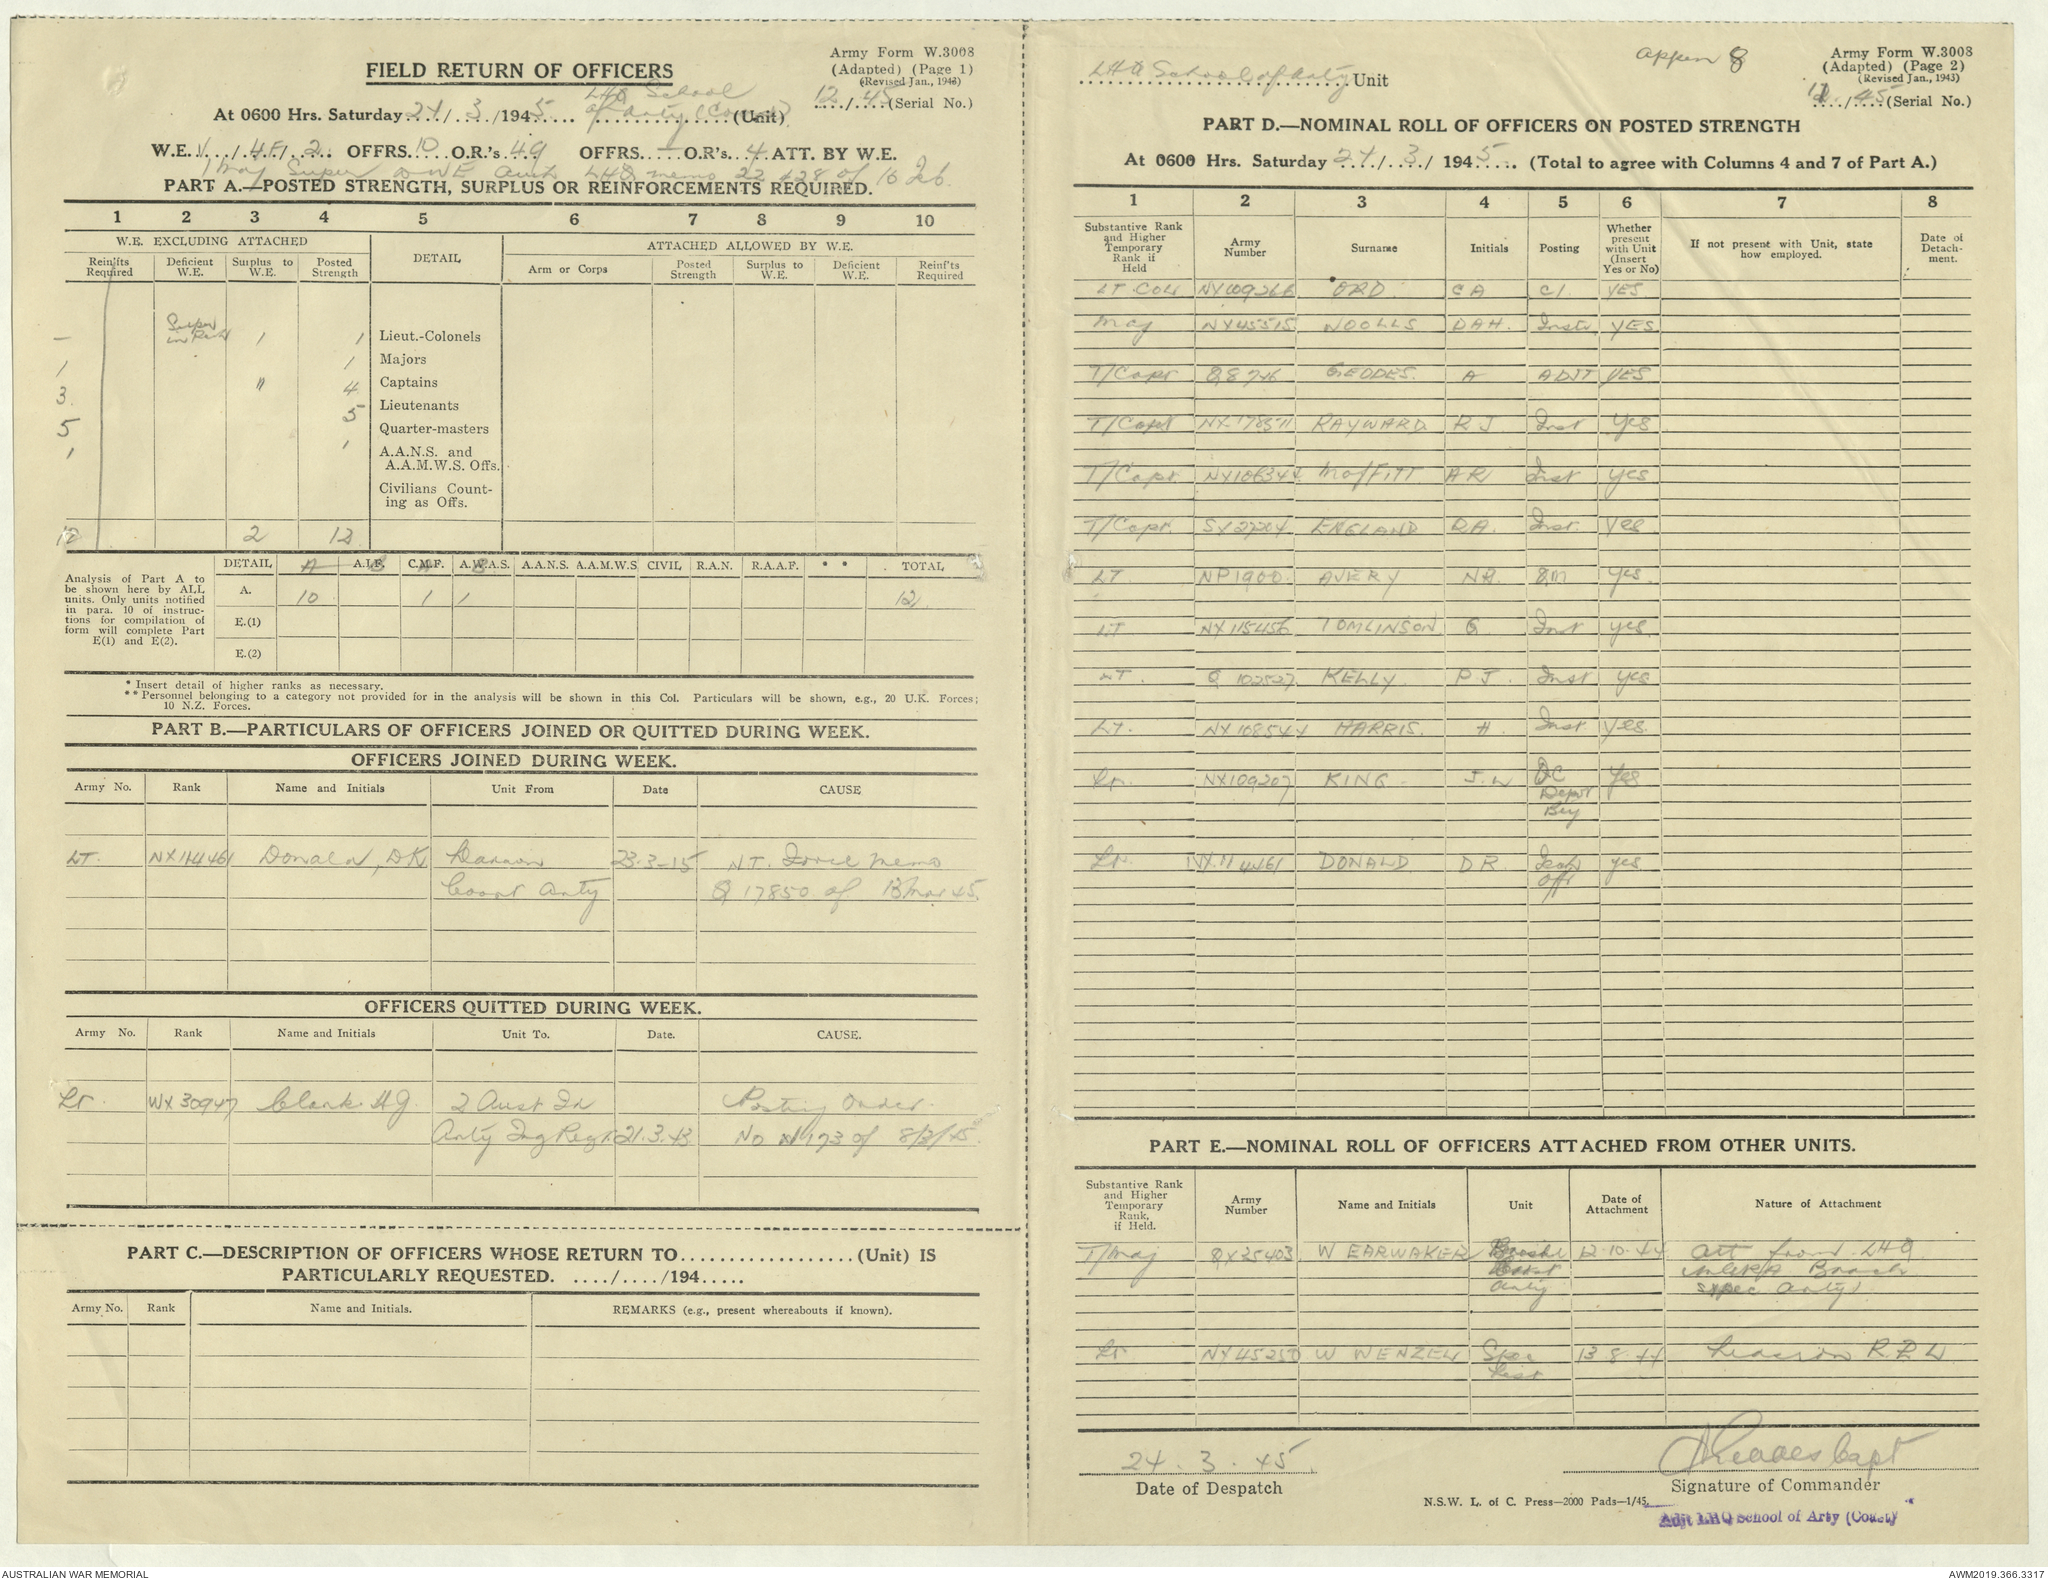 Army Form W.3008
(Adapted) (Page 1)
(Revised Jan., 1943)
FIELD RETURN OF OFFICERS
12/45 (Serial No.)
LHQ School
At 0600 Hrs. Saturday 24/3/1945 of Arty (Coast) (Unit)
W.E. V/4F/2 OFFRS. 10 O.R.'s 49 OFFRS. — O.R's. 4 ATT. BY W.E.
1 Maj Super to WE auth LHQ memo 22428 of 16 Feb.
PART A.—POSTED STRENGTH, SURPLUS OR REINFORCEMENTS REQUIRED.
1 2 3 4 5 6 7 8 9 10
W.E. EXCLUDING ATTACHED DETAIL ATTACHED ALLOWED BY W.E.
Reinf'ts Required Deficient W.E. Surplus to W.E. Posted Strength Arm or Corps Posted Strength Surplus to W.E. Deficient W.E. Reinf'ts Required
Super
— in Rank 1 1 Lieut.-Colonels
1 1 Majors
3 " 4 Captains
5 5 Lieutenants
1 1 Quarter-masters
A.A.N.S. and
A.A.M.W.S. Offs.
Civilians Count-
ing as Offs.
12 2 12
Analysis of Part A to
be shown here by ALL
units. Only units notified
in para. 10 of instruc-
tions for compilation of
form will complete Part
E(1) and E(2).
DETAIL A.I.F. C.M.F. A.W.A.S. A.A.N.S. A.A.M.W.S CIVIL R.A.N. R.A.A.F. * * TOTAL
A. 10 1 1 12
E.(1)
E.(2)
* Insert detail of higher ranks as necessary.
** Personnel belonging to a category not provided for in the analysis will be shown in this Col. Particulars will be shown, e.g., 20 U.K. Forces;
10 N.Z. Forces.
PART B.—PARTICULARS OF OFFICERS JOINED OR QUITTED DURING WEEK.
OFFICERS JOINED DURING WEEK.
Army No. Rank Name and Initials Unit From Date CAUSE
LT. NX114461 Donald, DR Darwin 23-3-45 N.T. Force Memo
Coast Arty Q 17850 of 13 Mar 45.
OFFICERS QUITTED DURING WEEK.
Army No. Rank Name and Initials Unit To. Date. CAUSE.
Lt. WX30947 Clark HG. 2 Aust Fd Posting Order
Arty Trg Regt. 21.3.45 No 173 of 8/3/45.
PART C.—DESCRIPTION OF OFFICERS WHOSE RETURN TO.................(Unit) IS
PARTICULARLY REQUESTED. ..../..../194.....
Army No. Rank Name and Initials. REMARKS (e.g., present whereabouts if known).
Appen 8
Army Form W.3008
(Adapted) (Page 2)
(Revised Jan., 1943)
LHQ School of Arty Unit
12/45 (Serial No.)
PART D.—NOMINAL ROLL OF OFFICERS ON POSTED STRENGTH
At 0600 Hrs. Saturday 24/3/1945 (Total to agree with Columns 4 and 7 of Part A.)
1 2 3 4 5 6 7 8
Substantive Rank and Higher Temporary Rank if Held Army Number Surname Initials Posting Whether present with Unit (Insert Yes or No) If not present with Unit, state how employed. Date of Detach-ment.
LT COL NX109266 ORD CA CI YES
Maj NX45515 NOOLLS DAH. Instr YES
T/Capt Q8746 GEDDES. A ADJT YES
T/Capt NX178511 RAYWARD RJ Inst Yes
T/Capt NX106344 MOFFITT AR Inst Yes
T/Capt. SX27204 ENGLAND RA. Inst. Yes
LT NP1900. AVERY NB. QM Yes.
LT NX115456 TOMLINSON G Inst Yes
LT. Q 102527 KELLY PJ. Inst Yes
LT. NX108544 HARRIS. H. Inst Yes.
Lt. NX109207 KING J.W OC Yes
Depot
Bty
Lt. NX114461 DONALD DR Yes
Offr
PART E.—NOMINAL ROLL OF OFFICERS ATTACHED FROM OTHER UNITS.
Substantive Rank and Higher Temporary Rank, if Held. Army Number Name and Initials Unit Date of Attachment Nature of Attachment
T/Maj QX25403 W EARWAKER 12-10-44 Att from LHQ
Coast Branch
Arty Spec Arty)
Lt. NX45250 W WENZEL Spec 13 8 44 Liaison R.P.L
List
24. 3. 45.
Date of Despatch
A Geddes Capt
Signature of Commander
N.S.W. L. of C. Press—2000 Pads—1/45.
Adjt LHQ School of Arty (Coast)
AUSTRALIAN WAR MEMORIAL
AWM2019.366.3317